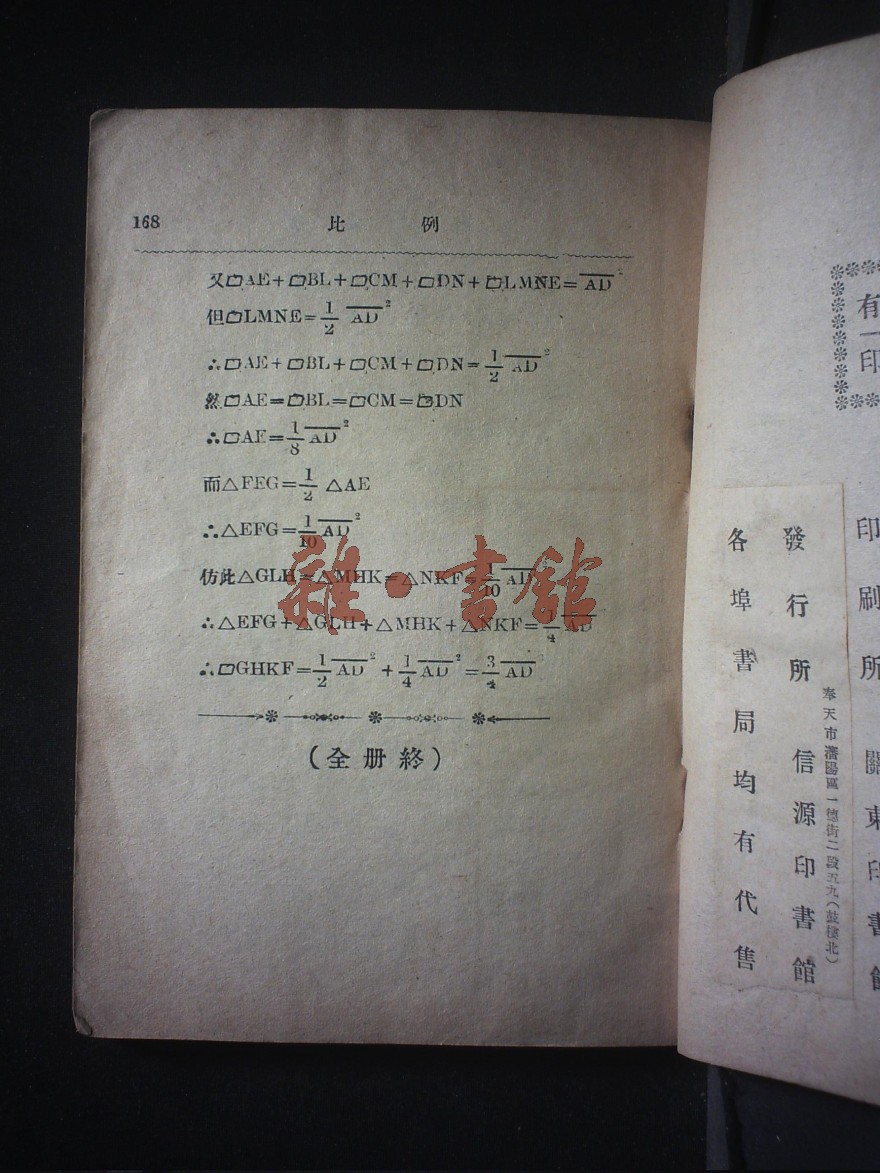 168 比例
又▱AE+▱BL+▱CM+▱DN+▱LMNE=A̅D̅²
但▱LMNE=1/2 A̅D̅²
∴▱AE+▱BL+▱CM+▱DN=1/2 A̅D̅²
然▱AE=▱BL=▱CM=▱DN
∴▱AE=1/8 A̅D̅²
而△FEG=1/2 △AE
∴△EFG=1/10 A̅D̅²
仿此△GLH=△MHK=△NKF=1/10 A̅D̅²
∴△EFG+△GLH+△MHK+△NKF=1/4 A̅D̅
∴▱GHKF=1/2 A̅D̅²+1/4 A̅D̅²=3/4 A̅D̅²
(全册終)
雜·書館
有
印
印刷所 關東印書館
奉天市瀋陽區一德街二段五九(鼓樓北)
發行所 信源印書館
各埠書局均有代售